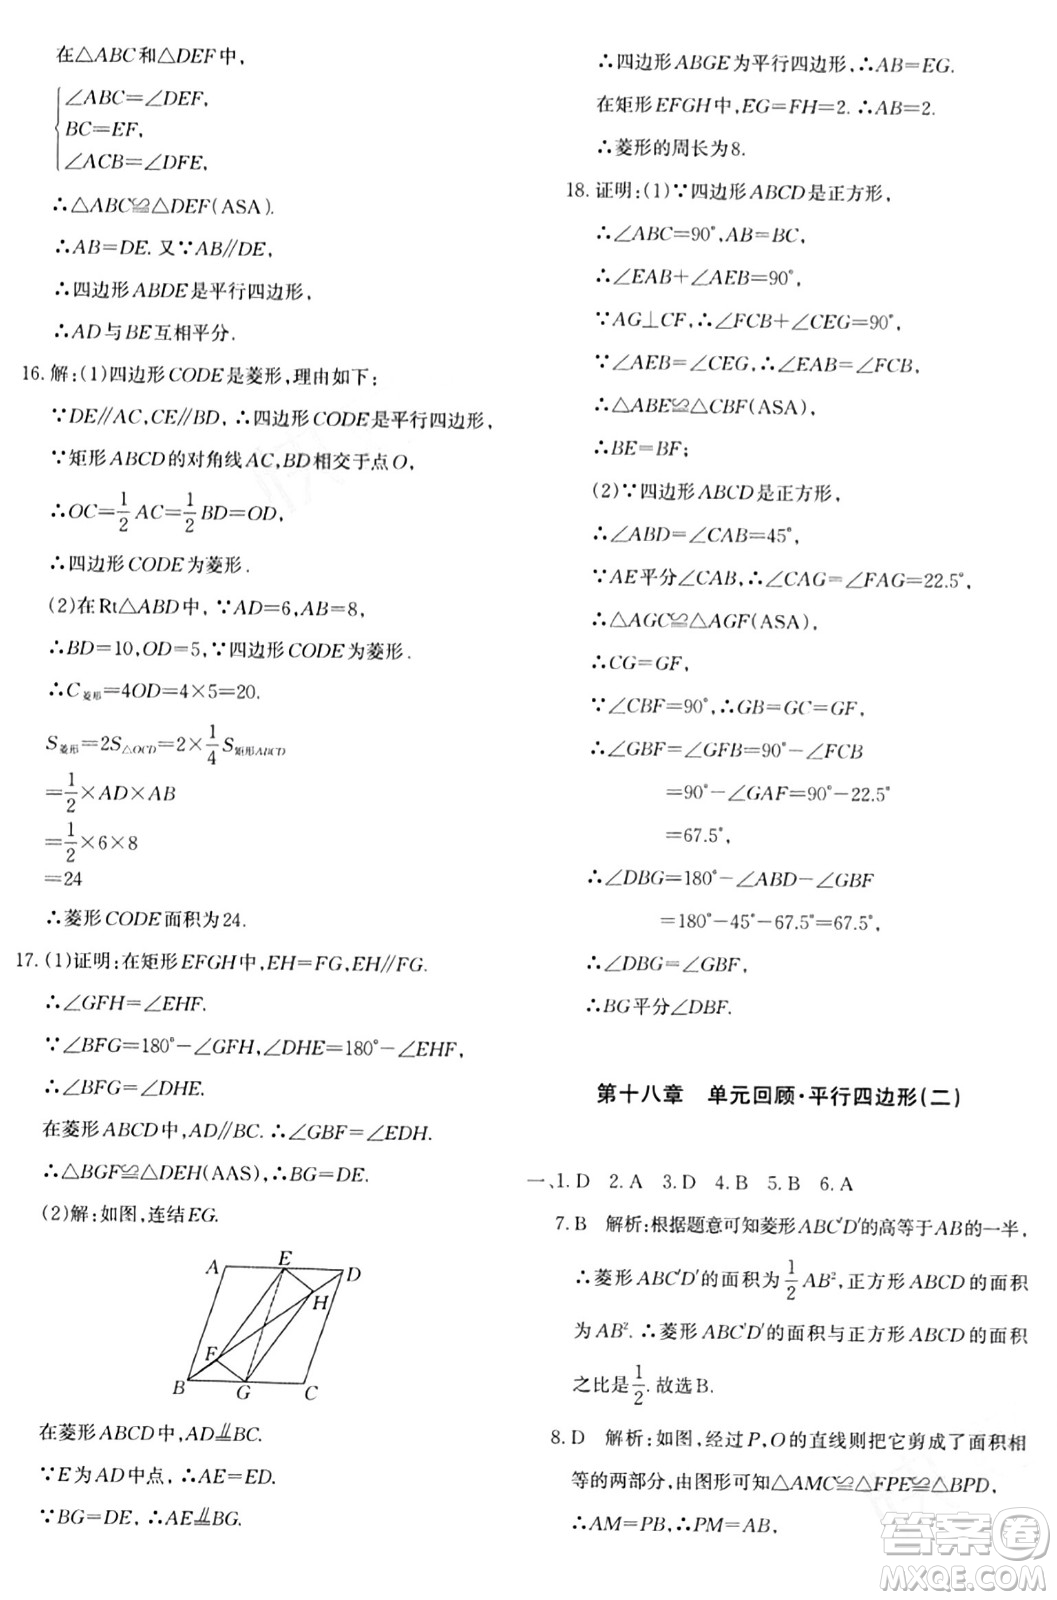 在△ABC和△DEF中,
∠ABC=∠DEF,
BC=EF,
∠ACB=∠DFE,
∴△ABC≌△DEF(ASA).
∴AB=DE. 又∵AB∥DE,
∴四边形ABDE是平行四边形,
∴AD与BE互相平分.
16. 解:(1)四边形CODE是菱形,理由如下:
∵DE∥AC,CE∥BD, ∴四边形CODE是平行四边形,
∵矩形ABCD的对角线AC,BD相交于点O,
∴OC=1/2 AC=1/2 BD=OD,
∴四边形CODE为菱形.
(2)在Rt△ABD中, ∵AD=6,AB=8,
∴BD=10,OD=5,∵四边形CODE为菱形.
∴C菱形=4OD=4×5=20.
S菱形=2S△OCD=2×1/4 S矩形ABCD
=1/2×AD×AB
=1/2×6×8
=24
∴菱形CODE面积为24.
17. (1)证明:在矩形EFGH中,EH=FG,EH∥FG.
∴∠GFH=∠EHF.
∵∠BFG=180°-∠GFH,∠DHE=180°-∠EHF,
∴∠BFG=∠DHE.
在菱形ABCD中,AD∥BC. ∴∠GBF=∠EDH.
∴△BGF≌△DEH(AAS), ∴BG=DE.
(2)解:如图,连结EG.
A E D
H
F
B G C
在菱形ABCD中,AD∥=BC.
∵E为AD中点, ∴AE=ED.
∵BG=DE, ∴AE∥=BG.
∴四边形ABGE为平行四边形,∴AB=EG.
在矩形EFGH中,EG=FH=2. ∴AB=2.
∴菱形的周长为8.
18. 证明:(1)∵四边形ABCD是正方形,
∴∠ABC=90°,AB=BC,
∴∠EAB+∠AEB=90°,
∵AG⊥CF, ∴∠FCB+∠CEG=90°,
∵∠AEB=∠CEG, ∴∠EAB=∠FCB,
∴△ABE≌△CBF(ASA),
∴BE=BF;
(2)∵四边形ABCD是正方形,
∴∠ABD=∠CAB=45°,
∵AE平分∠CAB, ∴∠CAG=∠FAG=22.5°,
∴△AGC≌△AGF(ASA),
∴CG=GF,
∵∠CBF=90°,∴GB=GC=GF,
∴∠GBF=∠GFB=90°-∠FCB
=90°-∠GAF=90°-22.5°
=67.5°,
∴∠DBG=180°-∠ABD-∠GBF
=180°-45°-67.5°=67.5°,
∴∠DBG=∠GBF,
∴BG平分∠DBF.
第十八章 单元回顾·平行四边形(二)
一、1. D 2. A 3. D 4. B 5. B 6. A
7. B 解析:根据题意可知菱形ABC′D′的高等于AB的一半,
∴菱形ABC′D′的面积为1/2 AB²,正方形ABCD的面积
为AB². ∴菱形ABC′D′的面积与正方形ABCD的面积
之比是1/2. 故选B.
8. D 解析:如图,经过P,O的直线则把它剪成了面积相
等的两部分,由图形可知△AMC≌△FPE≌△BPD,
∴AM=PB,∴PM=AB,
答案卷
MXQE.COM